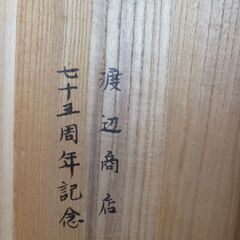 渡辺商店
七十五周年記念